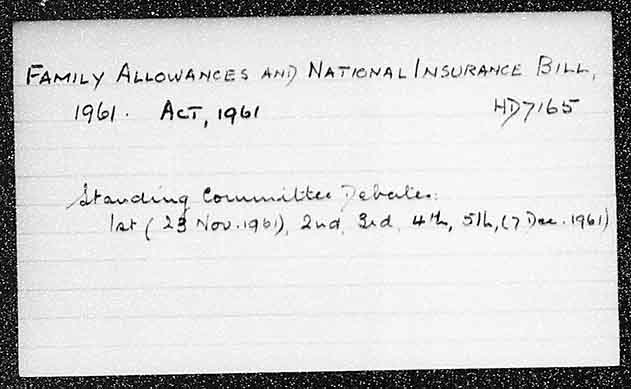 FAMILY ALLOWANCES AND NATIONAL INSURANCE BILL,
1961. ACT, 1961 HD7165
Standing Committee Debates:
1st (23 Nov. 1961), 2nd, 3rd, 4th, 5th, (7 Dec. 1961)